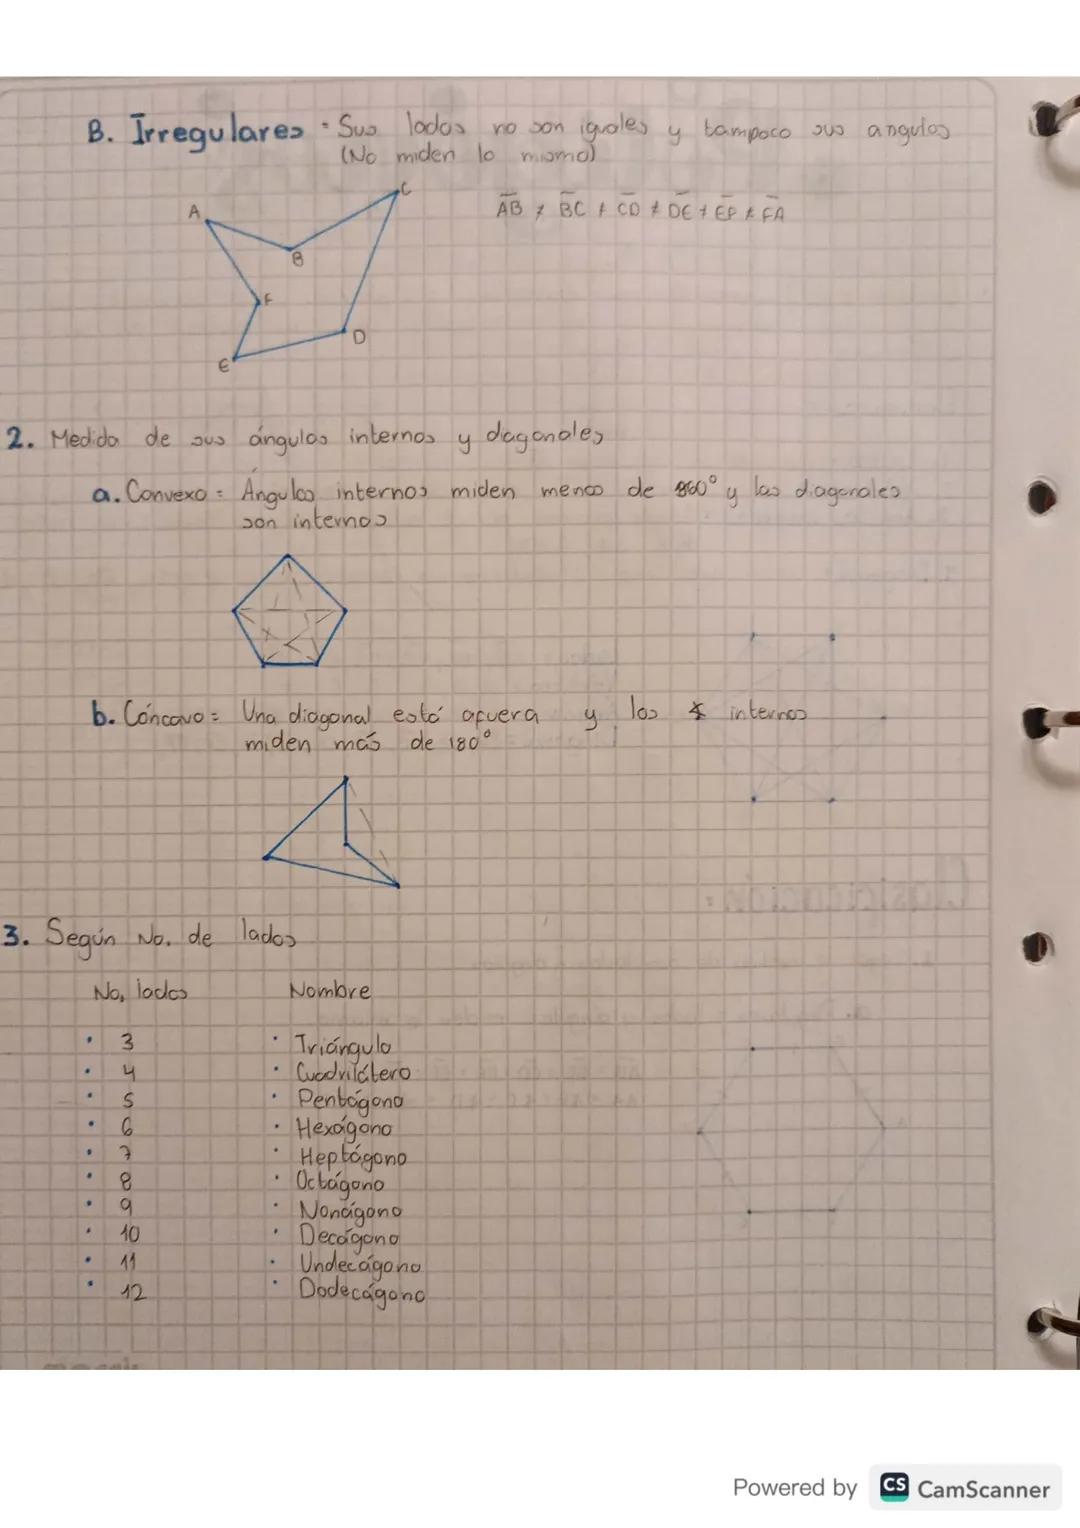 B. Irregulares = Sus lados no son iguales y tampoco sus angulos
(No miden lo mismo)
A
C
AB ≠ BC ≠ CD ≠ DE ≠ EF ≠ FA
B
F
D
E
2. Medida de sus ángulos internos y diagonales
a. Convexo = Ángulos internos miden menos de 860° y las diagonales
son internos
b. Cóncavo = Una diagonal está afuera y los ∡ internos
miden más de 180°
3. Según No. de lados
No. lados Nombre
• 3 • Triángulo
• 4 • Cuadrilátero
• 5 • Pentágono
• 6 • Hexágono
• 7 • Heptágono
• 8 • Octágono
• 9 • Nonágono
• 10 • Decágono
• 11 • Undecágono
• 12 • Dodecágono
Powered by CS CamScanner